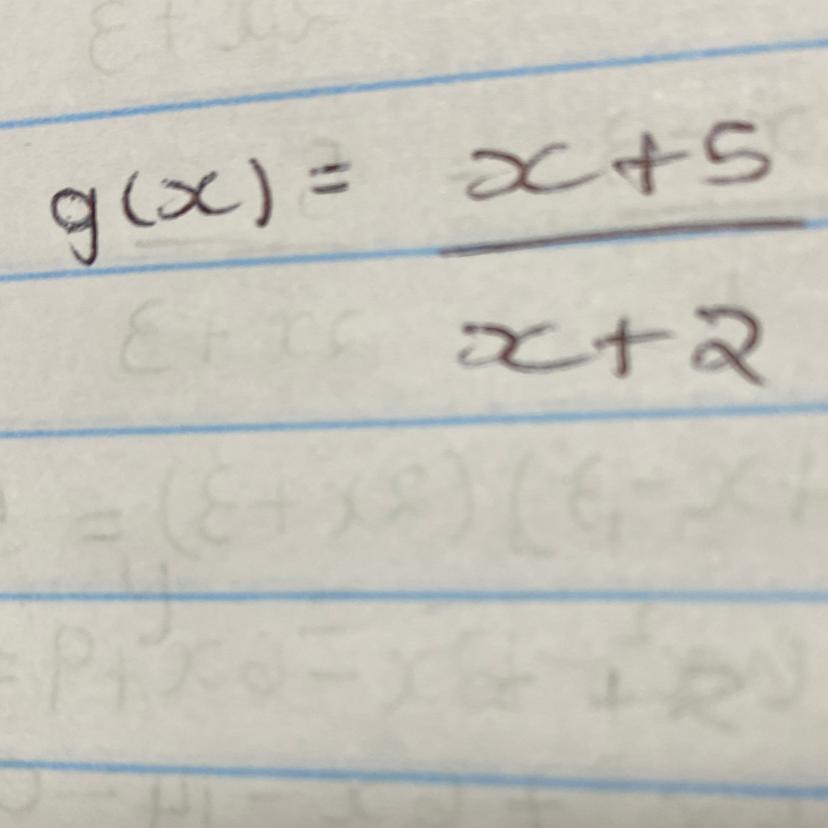 g(x) = x+5
x+2